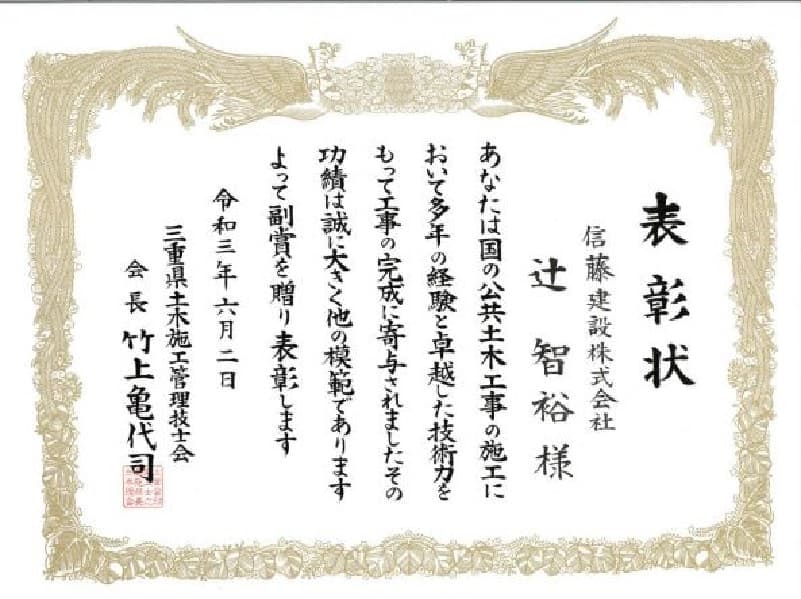 表彰状
信藤建設株式会社
辻 智裕 様
あなたは国の公共土木工事の施工に
おいて多年の経験と卓越した技術力を
もって工事の完成に寄与されましたその
功績は誠に大きく他の模範であります
よって副賞を贈り表彰します
令和三年六月二日
三重県土木施工管理技士会
会長 竹上亀代司